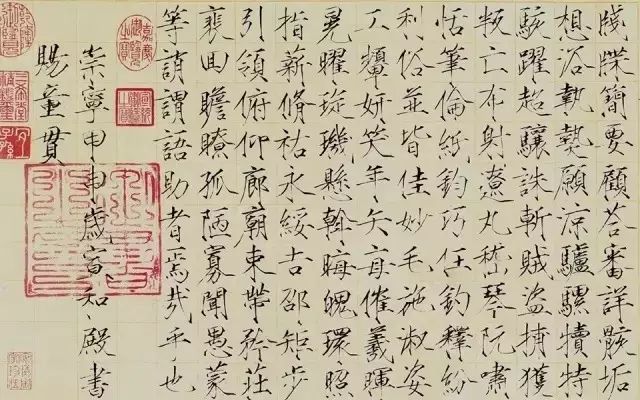 牋牒簡要顧荅審詳骸垢
想浴執熱願涼驢騾犢特
駭躍超驤誅斬賊盜捕獲
叛亡布射遼丸嵇琴阮嘯
恬筆倫紙鈞巧任釣釋紛
利俗並皆佳妙毛施淑姿
工顰妍笑年矢每催羲暉
晃曜琁璣懸斡晦魄環照
指薪脩祜永綏吉邵矩步
引領俯仰廊廟束帶矜莊
裵回瞻眺孤陋寡聞愚蒙
等誚謂語助者焉哉乎也
崇寧甲申歲宣和殿書
賜童貫
嘉慶御覽之寶
三希堂精鑑璽
宜子孫